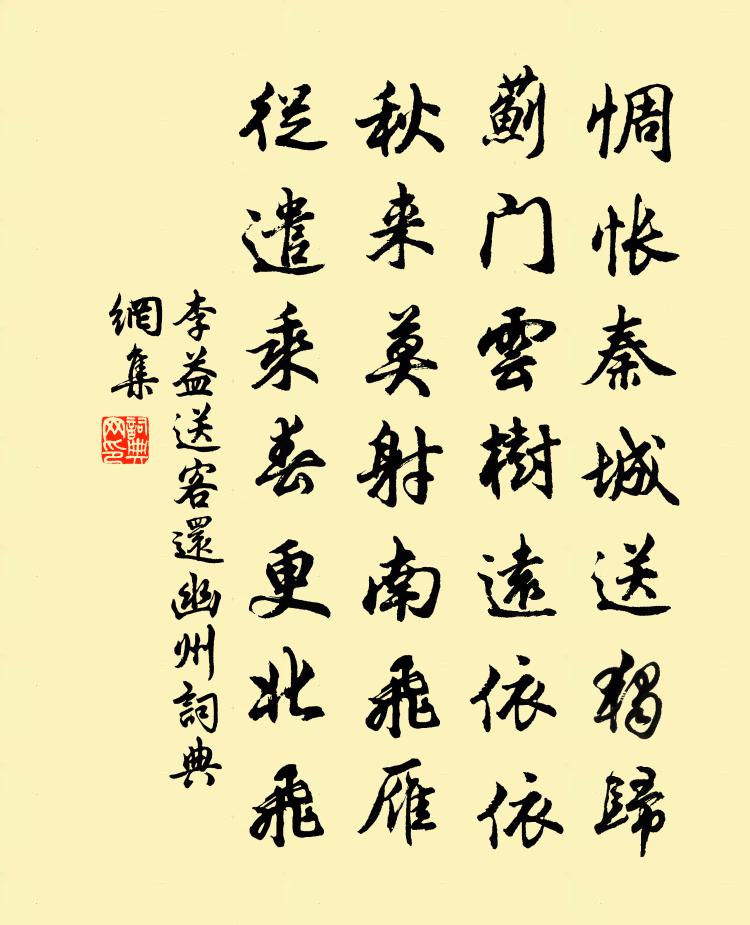 惆怅秦城送獨歸
薊门雲樹遠依依
秋来莫射南飛雁
從遣乘春更北飛
李益送客還幽州詞典
網集
詞典
网印